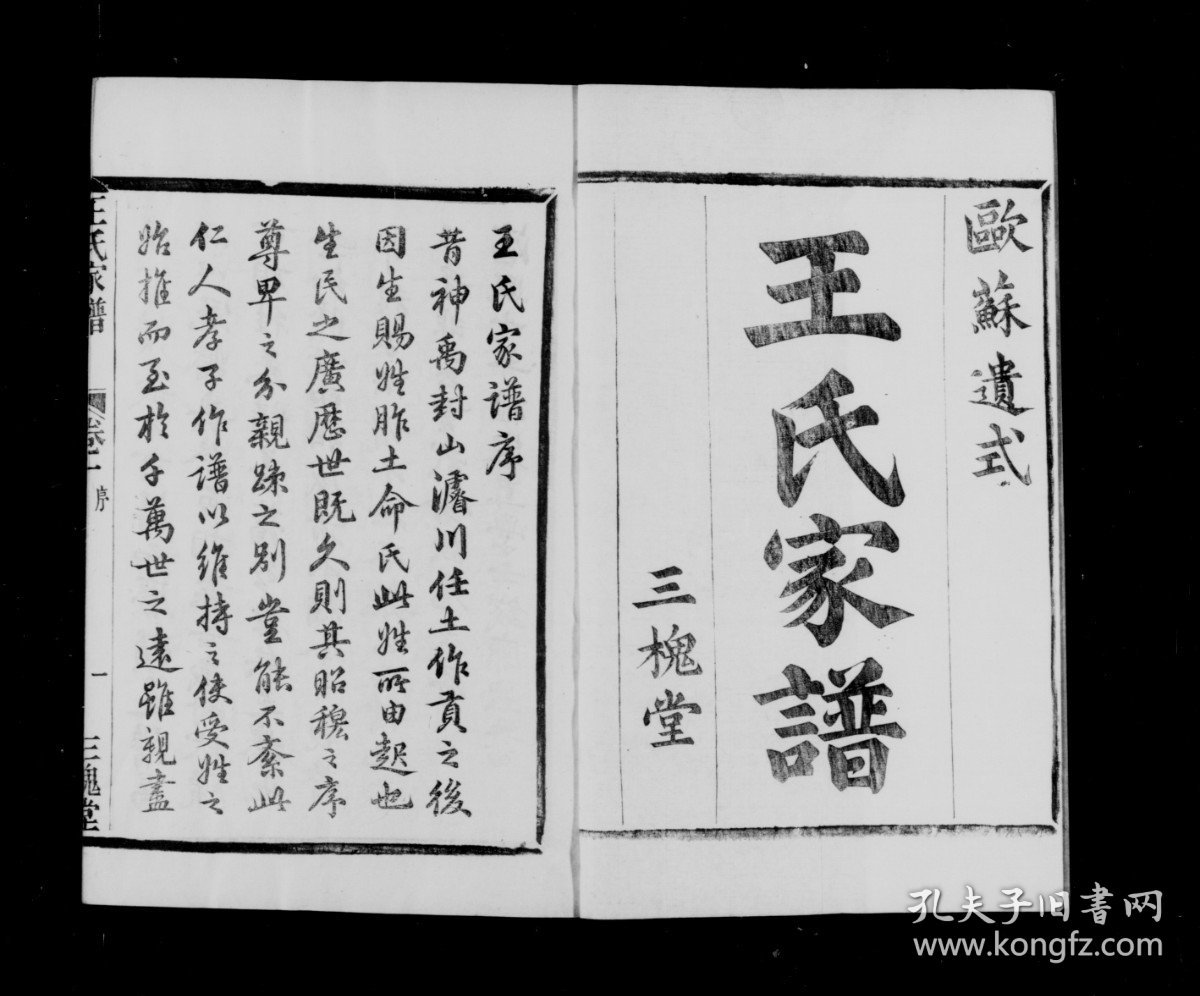 歐蘇遺式
王氏家譜
三槐堂
王氏家譜序
昔神禹封山濬川任土作貢之後
因生賜姓胙土命氏此姓所由起也
生民之廣歷世既久則其昭穆之序
尊卑之分親疎之別豈能不紊此
仁人孝子作譜以維持之使受姓之
始推而至於千萬世之遠雖親盡
王氏家譜
卷一
序
一
三槐堂
孔夫子旧書网
www.kongfz.com